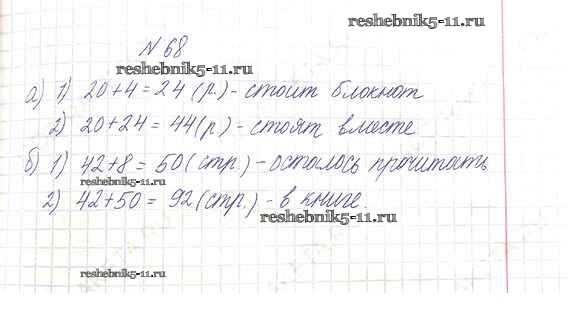 reshebnik5-11.ru
№68
reshebnik5-11.ru
а) 1) 20+4=24 (р.) - стоит блокнот
2) 20+24=44(р) - стоят вместе
б) 1) 42+8=50(стр.) - осталось прочитать
reshebnik5-11.ru
2) 42+50=92(стр.) - в книге.
reshebnik5-11.ru
reshebnik5-11.ru